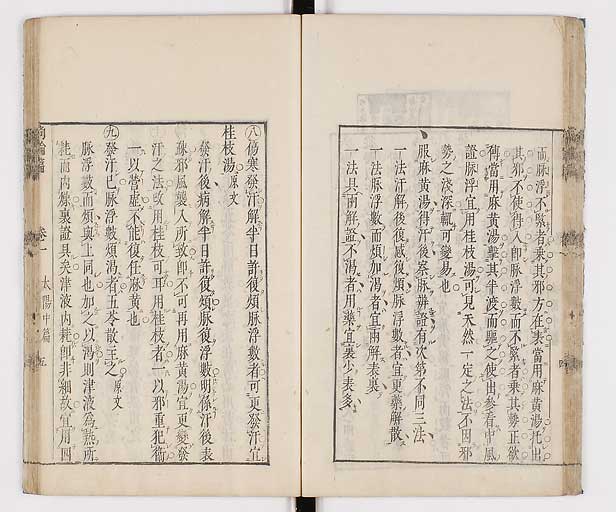 而脉浮不緊者乘其邪方在表當用麻黃湯托出
其邪不使得入卽脉浮數而不緊者乘其勢正欲
傳當用麻黃湯擊其半渡而驅之使出參看中風
證脉浮宜用桂枝湯可見天然一定之法不因邪
勢之淺深輒可變易也
服麻黃湯得汗後察脉辨證有次第不同三法
一法汗解後復感復煩脉浮數者宜更藥解散
一法脉浮數而煩加渴者宜兩解表裏
一法具兩解證不渴者用藥宜裏少表多
㊇傷寒發汗解半日許復煩脉浮數者可更發汗宜
桂枝湯原文
發汗後病解半日許復煩脉復浮數明係汗後表
疎邪風襲入所致卽不可再用麻黃湯宜更變發
汗之法改用桂枝可耳用桂枝者一以邪重犯衞
一以營虛不能復任麻黃也
㊈發汗已脉浮數煩渴者五苓散主之原文
脉浮數而煩與上同也加之以渴則津液爲熱所
耗而內燥裏證具矣津液內耗卽非細故宜用四
尚論篇 卷一 太陽中篇 五